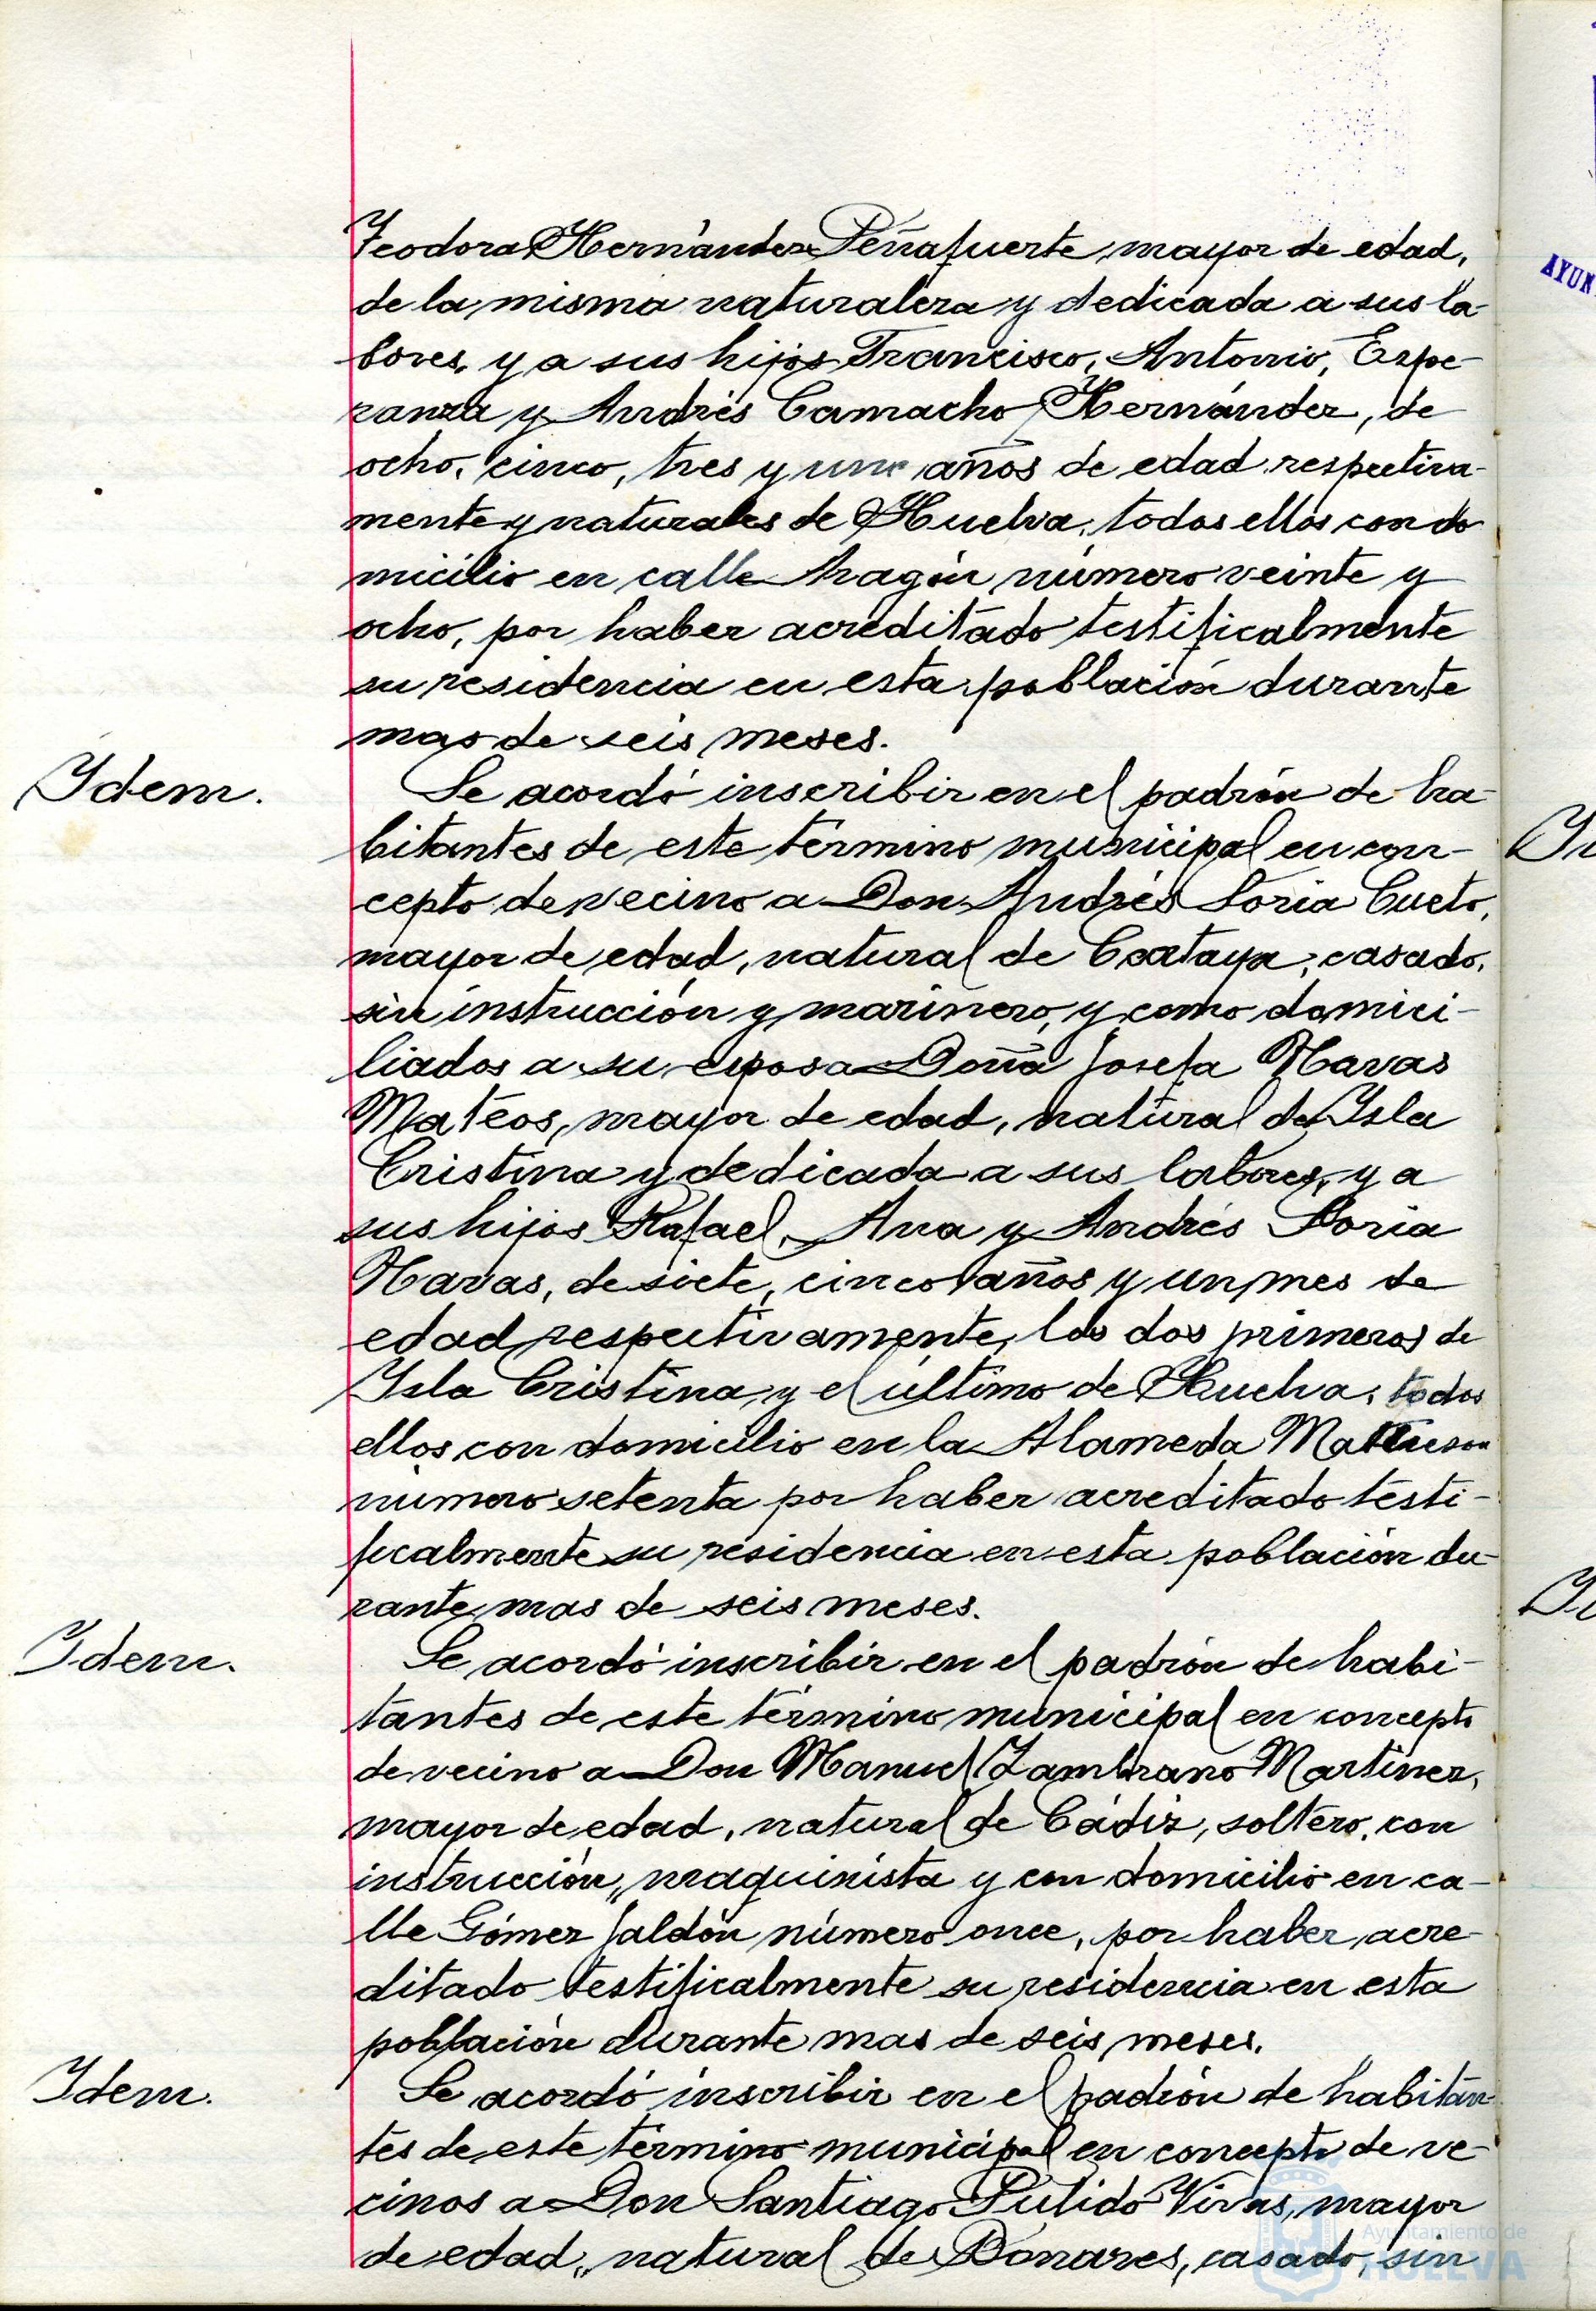 Teodora Hernández Peñafuerte, mayor de edad,
de la misma naturaleza y dedicada a sus la-
bores, y a sus hijos Francisco, Antonio, Espe-
ranza y Andrés Camacho Hernández, de
ocho, cinco, tres y un años de edad respectiva-
mente y naturales de Huelva, todos ellos con do
micilio en calle Aragón número veinte y
ocho, por haber acreditado testificalmente
su residencia en esta población durante
mas de seis meses.
Idem.
Se acordó inscribir en el padrón de ha-
bitantes de este término municipal en con-
cepto de vecino a Don Andrés Soria Cueto,
mayor de edad, natural de Cartaya, casado,
sin instrucción y marinero, y como domici-
liados a su esposa Doña Josefa Navas
Mateos, mayor de edad, natural de Isla
Cristina y dedicada a sus labores, y a
sus hijos Rafael, Ana y Andrés Soria
Navas, de siete, cinco años y un mes de
edad respectivamente, los dos primeros de
Isla Cristina y el último de Huelva, todos
ellos con domicilio en la Alameda Mattheson
número setenta por haber acreditado testi-
ficalmente su residencia en esta población du-
rante mas de seis meses.
Idem.
Se acordó inscribir en el padrón de habi-
tantes de este término municipal en concepto
de vecino a Don Manuel Zambrano Martinez,
mayor de edad, natural de Cádiz, soltero, con
instrucción, maquinista y con domicilio en ca-
lle Gómez Jaldón número once, por haber acre-
ditado testificalmente su residencia en esta
población durante mas de seis meses.
Idem.
Se acordó inscribir en el padrón de habitan-
tes de este término municipal en concepto de ve-
cinos a Don Santiago Pulido Vivas, mayor
de edad, natural de Bonares, casado, sin
AYUN
Ayuntamiento de
HUELVA